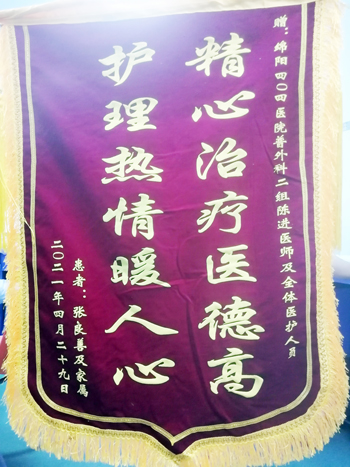 赠：绵阳四〇四医院普外科二组陈进医师及全体医护人员
精心治疗医德高
护理热情暖人心
患者：张良善及家属
二〇二一年四月二十九日